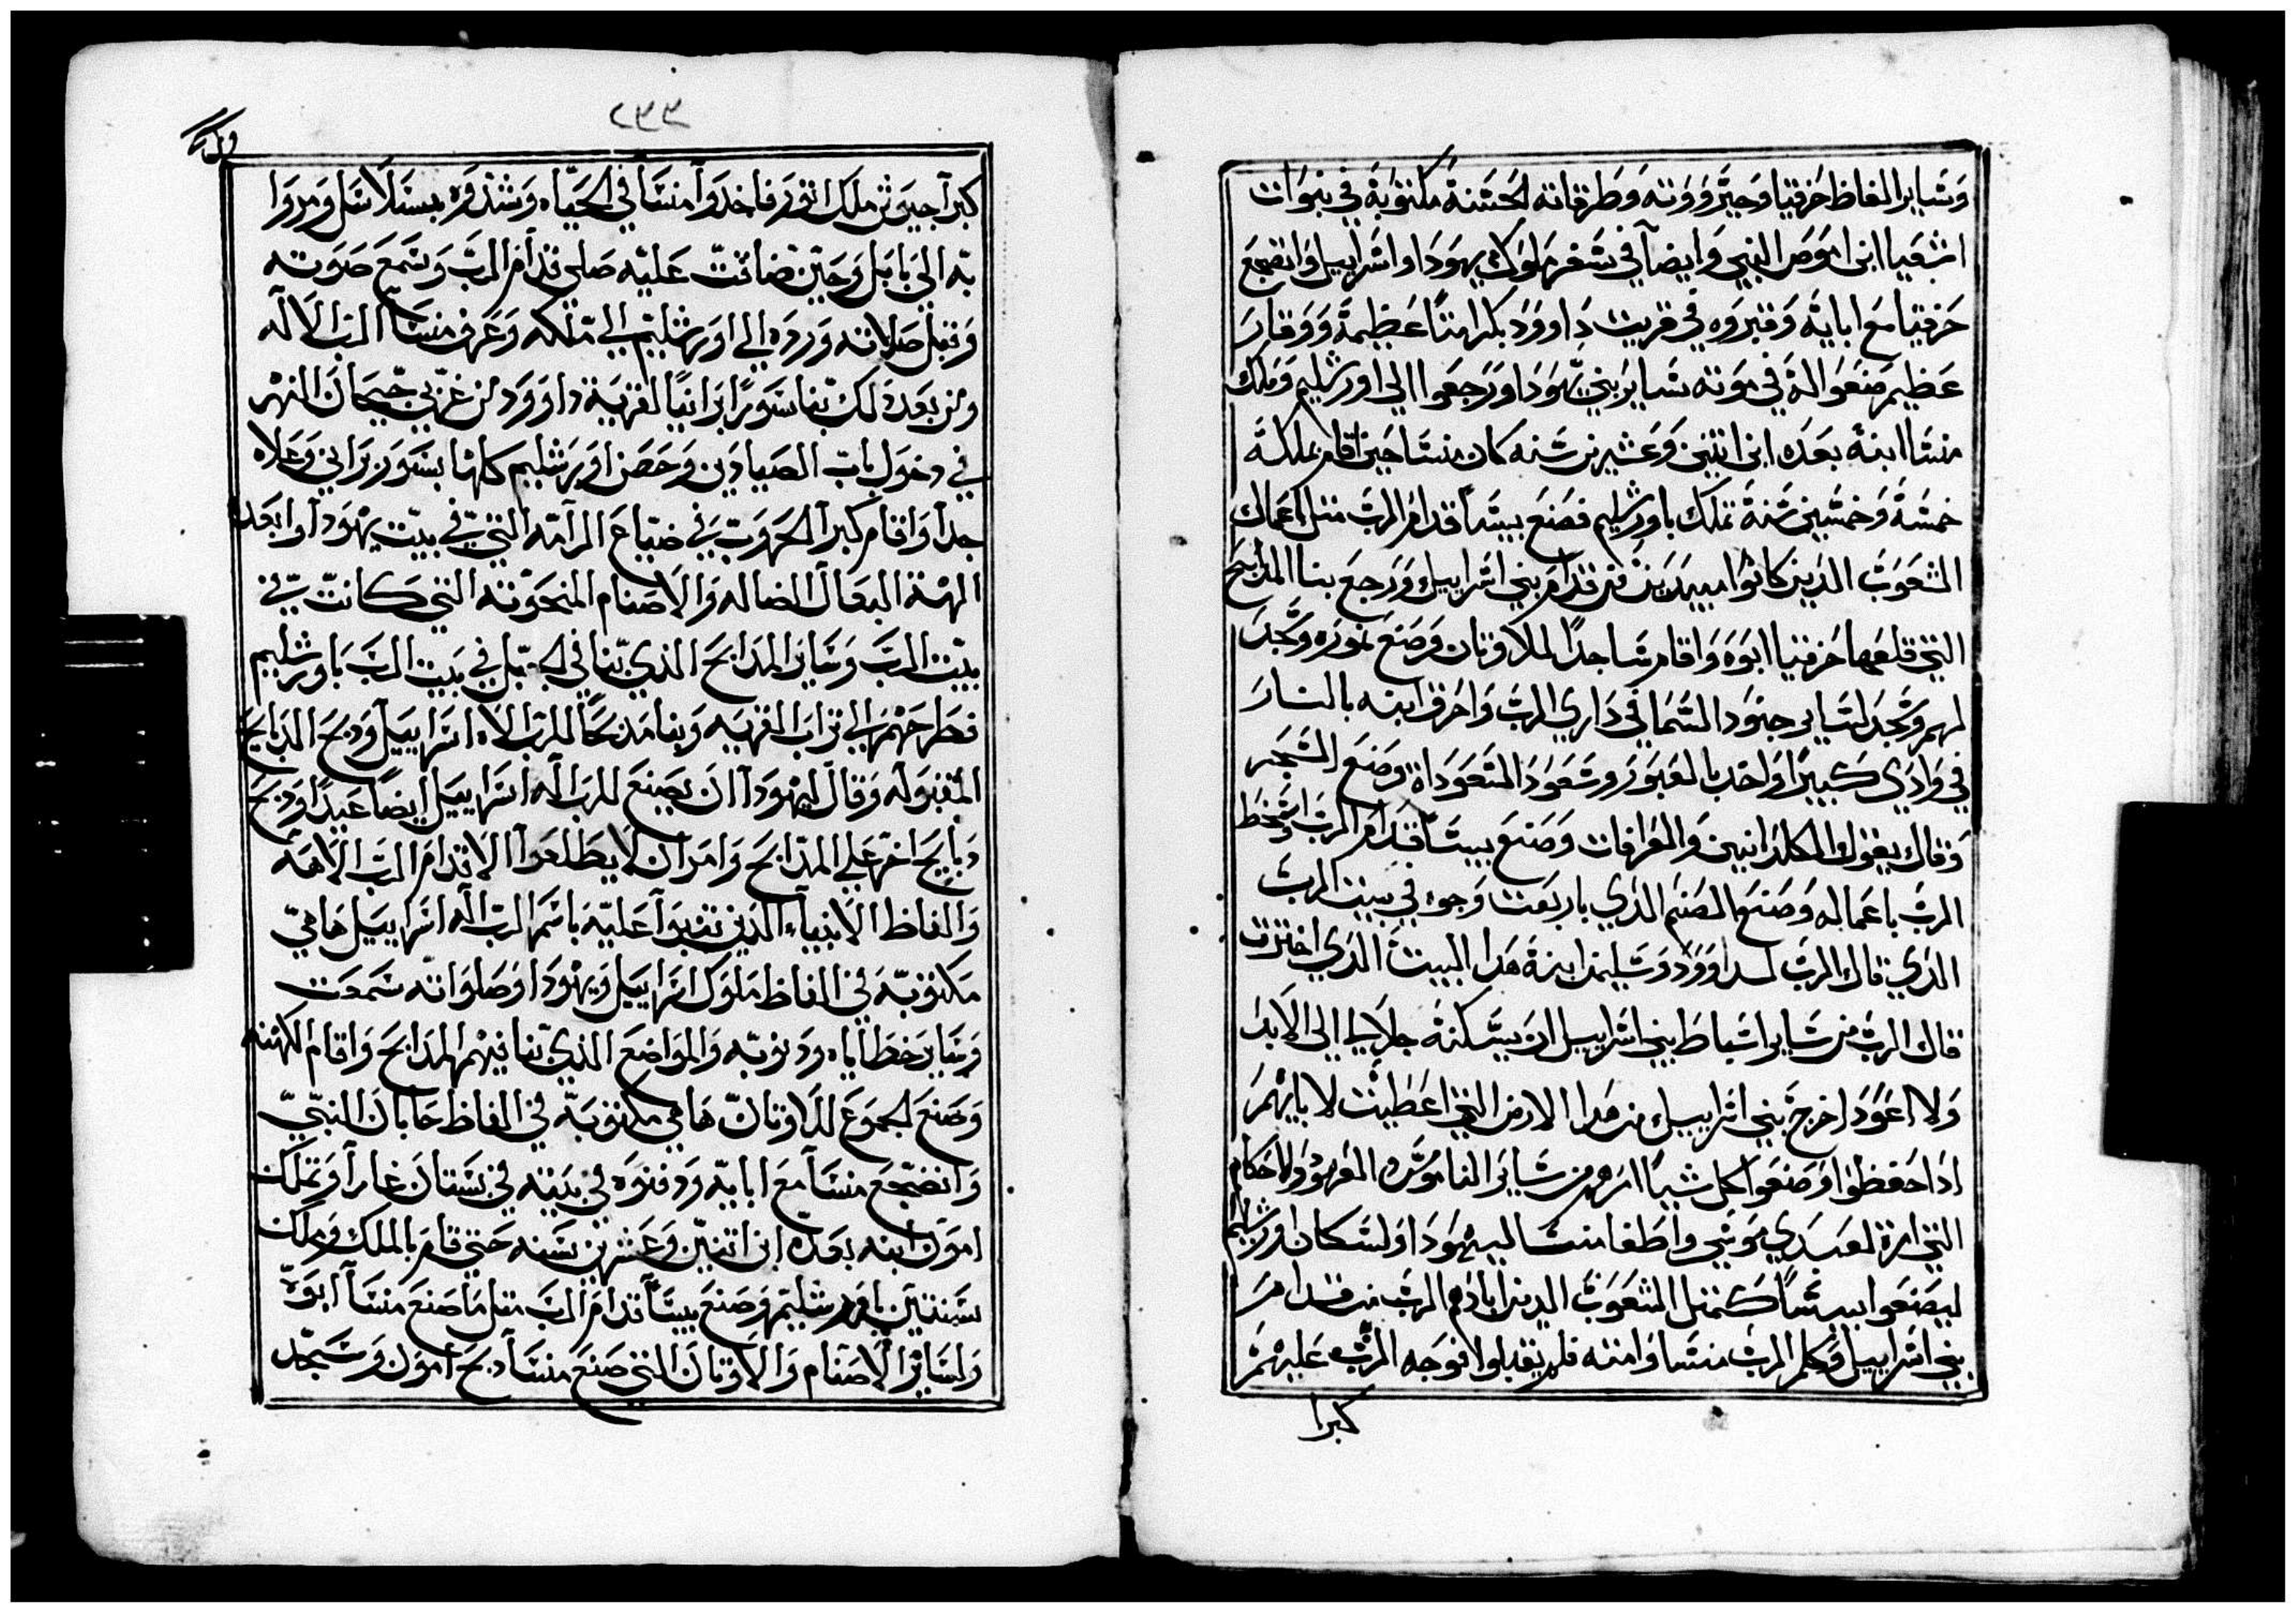 وسايرالفاظ حزقيا وجبروته وطرقاته الحسنة مكتوبة في نبوات
اشعيا ابن اموص النبي وايضآ في سفر ملوك يهودا واسراييل وانضجع
حزقيا مع ابايه وقبروه في قريت داوود بكرامتًا عظيمة ووقار
عظيم صنعوا له في موته ساير بني يهودا ورجعوا الي اورشليم وملك
منسا ابنه بعده ابن اتنين وعشرين سنه كان منسا حين اقام بملكه
خمسة وخمسين سنة تملك باورشليم فصنع بيسًا قدام الرب متل اعمال
الشعوب الدين كانوا مبيدين من قدام بني اسراييل ورجع بنا المدابح
التي قلعها حزقيا ابوه واقام ساجدًا للاوتان وصنع نموره وسجد
لهم وسجد لساير جنود السما في داري الرب واحرق ابنه بالنار
في وادي كبيرًا واخد بالعبور وسعود السعوداة وصنع السجر
وقال بقول الكلدانيين والعرافات وصنع بيسًا قدام الرب واسخط
الرب باعماله وصنع الصنم الدي باربعت وجوه في بييت الرب
الدي قال الرب لداوود وسليمان ابنة هدا البييت الدي اخترت
قال الرب من ساير اسباط بني اسراييل ان يسكنه جلالي الي الابد
ولا اعود اخرج بني اسراييل من هدا الارض التي اعطيت لابايهم
ادا حفظوا وصنعوا كل شيًا امرهم من ساير الناموس العهود والاحكام
التي امرة لعبدي موسي واطغا منسا ليهودا ولسكان اورشليم
ليصنعوا بيسًا كمتل الشعوب الدين ابادهم الرب من قدام
بني اسراييل وكلم الرب منسا وامته فلم يقبلوا فوجه الرب عليهم
كبرا
كبرآ جيوش ملك اتور فاخدوا منسا في الحياه وشدوه بسلاسل ومروا
به الي بابل وحين ضاقت عليه صلي قدام الرب وسمع صوته
وقبل صلاته ورده الي اورشليم الي ملكه وعرف منسا الرب الاله
ومن بعد دلك بنا سورًا برانيًا لقرية داوود من غربي جيحان النهر
في دخول باب الصيادين وحصن اورشليم كلها بسور براني وعلاه
جدا واقام كبرا الحروب في ضياع الرامه التي في بيت يهودا وابعد
الهة البعال الضاله والاصنام المنحوته التي كانت في
بيت الرب وساير المدابح الدي بنا في الجبل في بيت الرب باورشليم
فطرحهم الي تراب القريه وبنا مدبحًا للرب الاه اسراييل ودبح الدبايح
المقبوله وقال ليهودا ان يصنع للرب اله اسراييل ايضا عيدًا ودبح
دبايح اخر علي المدابح وامر ان لا يطلعوا الا قدام الرب الاهه
والفاظ الانبياء الدين تنبوا عليه باسم الرب اله اسراييل ها هي
مكتوبه في الفاظ ملوك اسراييل ويهودا وصلواته سمعت
وساير خطاياه ودنوبه والمواضع الدي بنا فيهم المدابح واقام الكهنه
وصنع الجموع للاوتان ها هي مكتوبه في الفاظ حابان النبي
وانضجع منسا مع ابايه ودفنوه في بيته في بستان غارا وتملك
امون ابنه بعده ابن اتنين وعشرين سنه حتي قام بالملك وملك
سنتين باورشليم وصنع بيسًا قدام الرب متل ما صنع منسا ابوه
ولساير الاصنام والاوتان التي صنع منسا دبح امون وسجد